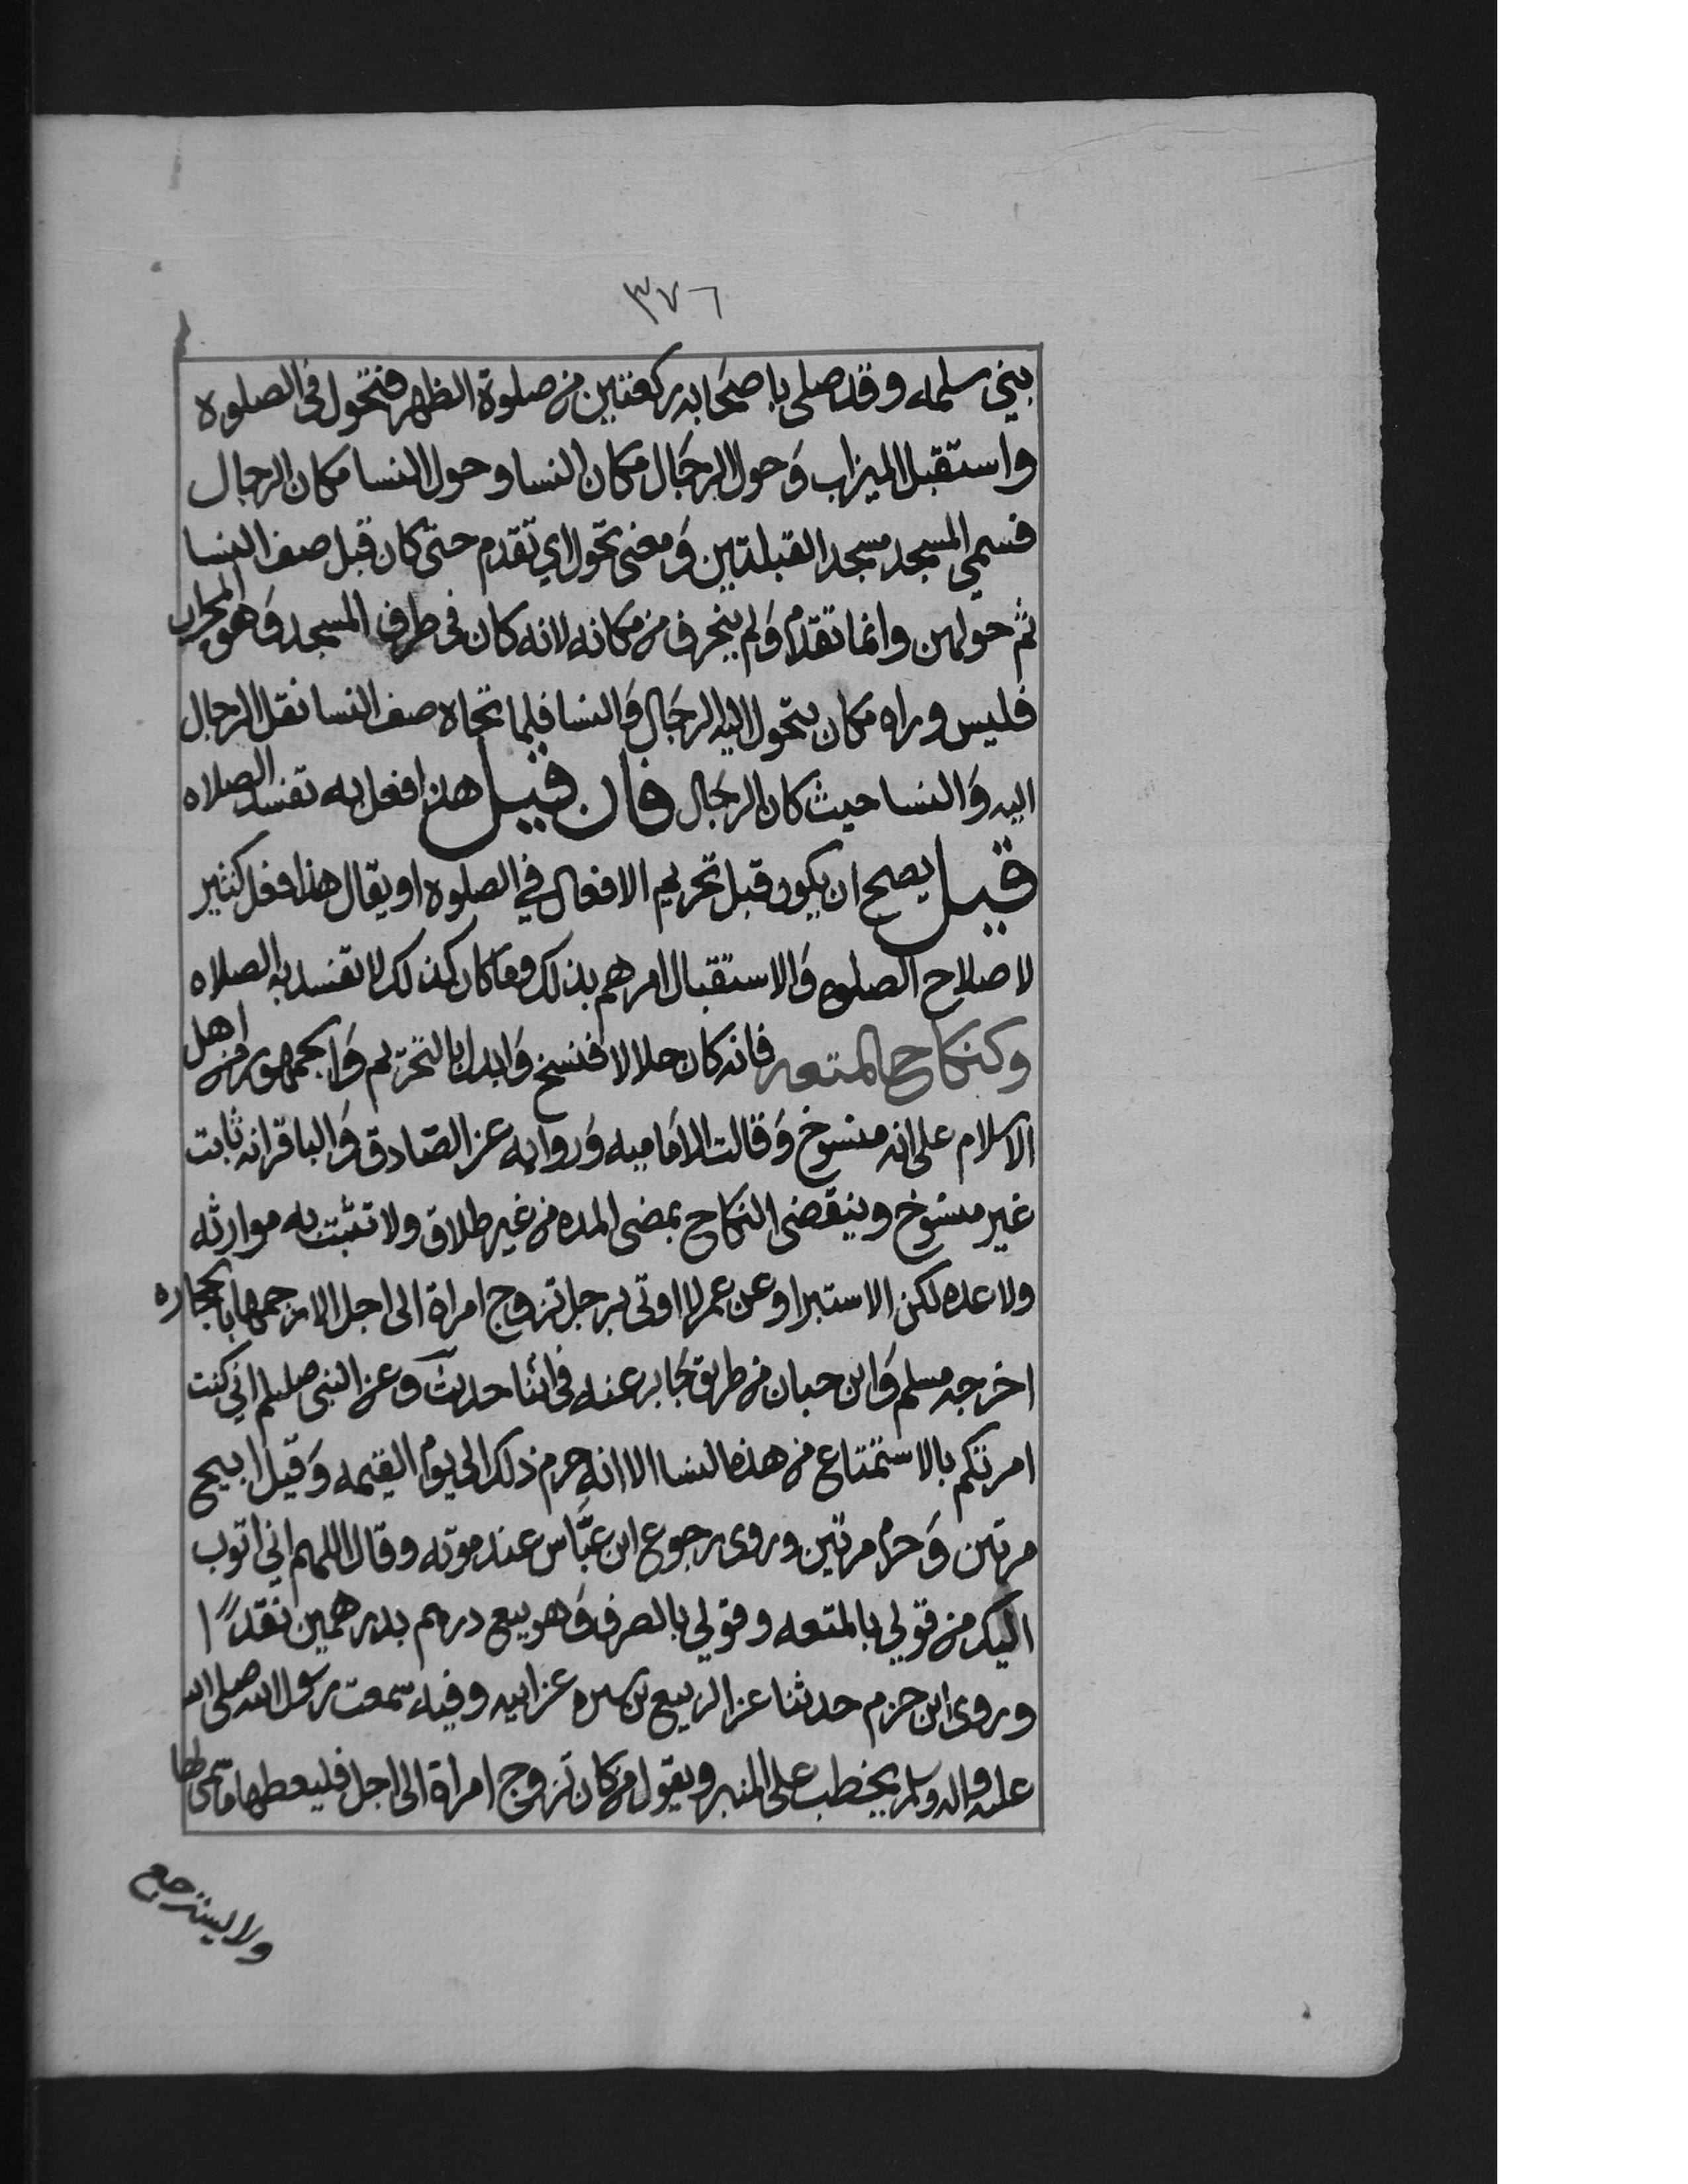 ٣٧٦
بني سلمه وقد صلى باصحابه ركعتين من صلوة الظهر فتحول فى الصلوه
واستقبل الميزاب وَحول الرجَال مكان النسا وحول النسا مكان الرجال
فسمي المسجد مسجد القبلتين وَمعنى تحول اي تقدم حتى كان قبل صف النسا
ثم حولهن وانما تقدم وَلم ينحرف من مكانه لانه كان فى طرف المسجد وَهو المحراب
فليس وراه مكان يتحول اليه الرجَال وَالنسا فلما تجاه صف النسا نقل الرجال
اليه وَالنسا حيث كان الرجَال فان قيل هذا فعل به تفسد الصلاه
قيل يصح ان يكون قبل تحريم الافعال في الصلوه او يقال هذا فعل كثير
لاصلاح الصلوه وَالاستقبال امرهم بذلك وما كان كذلك لا تفسد به الصلاه
وكنكاح المتعه فانه كان حلالا فنسخ وَابدل بالتحريم وَالجمهور من اهل
الاسلام على انه منسوخ وَقالت الاماميه وَروايه عن الصّادق وَالباقر انه ثابت
غير منسوخ وينقضى النكاح بمضى المده من غير طلاق ولا تثبت به موارثه
ولا عده لكن الاستبرا وعن عمر لا اوتى برجل تزوج امراة الى اجل الا رجمتها بالحجاره
اخرجه مسلم وَابن حبان من طريق جَابر عنه فى اثنا حديث وعن النبى صلعم اني كنت
امرتكم بالاستمتاع من هذه النسا الا انه حرم ذلك الى يوم القيمه وَقيل ابيح
مرتين وَحرم مرتين وروى رجوع ابن عبَّاس عند موته وقال اللهم اني اتوب
اليك من قولي بالمتعه وقولي بالصرف وَهو بيع درهم بدرهمين نقدًا
وروى ابن حزم حدثنا عن الربيع بن سبره عن ابيه وفيه سمعت رسول الله صلى الله
عليه واله وسلم يخطب على المنبر ويقول من كان تزوج امراة الى اجل فليعطها ما سمى لها
ولا يسترجع